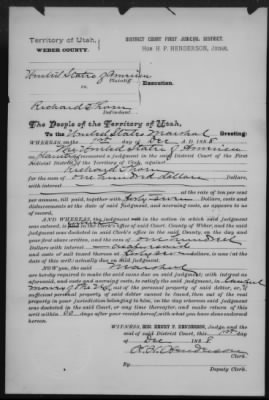 Territory of Utah,
WEBER COUNTY.
DISTRICT COURT FIRST JUDICIAL DISTRICT.
HON H P. HENDERSON, JUDGE.
United States of America
Plaintiff
vs.
Execution.
Richard Thorn
Defendant.
The People of the Territory of Utah,
To the United States Marshal Greeting:
WHEREAS, on the day of Dec A. D. 1888
The United States of America
plaintiff recovered a judgment in the said District Court of the First
Judicial District of the Territory of Utah, against
Richard Thorn
for the sum of one hundred dollars
with interest
at the rate of ten per cent
per annum, till paid, together with Dollars, costs and
disbursements at the date of said judgment, and accruing costs, as appears to us
of record.
AND WHEREAS, the judgment in the action in which said judgment was
entered, in the Clerk's office of said Court, County of Weber, and the said
judgment was docketed in said Clerk's office in the said County, on the day and
year first above written, and the sum of one hundred
Dollars, with interest
and costs of suit taxed thereon at dollars, is now (at the
date of this writ) actually due on said judgment.
NOW you, the said Marshal
are hereby required to make the said sum due on said judgment, with interest as
aforesaid, and costs and accruing costs, to satisfy the said judgment, in
money of the U. S. out of the personal property of said debtor, or if
sufficient personal property of said debtor cannot be found, then out of the real
property in your jurisdiction belonging to him, on the day whereon said judgment
was docketed in the said County, or any time thereafter, and make return of this
writ within 60 days after your receipt hereof, with what you have done endorsed
hereon.
WITNESS, HON HENRY P. HENDERSON, Judge, and the
seal of said District Court, this day of
Dec 1888
Clerk.
By
Deputy Clerk.